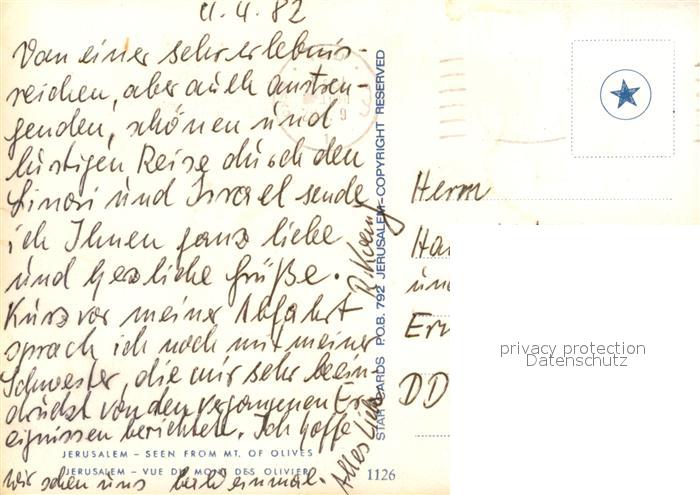 11.4.82
Von einer sehr erlebnis-
reichen, aber auch anstren-
genden, schönen und
lustigen Reise durch den
Sinai und Israel sende
ich Ihnen ganz liebe
und herzliche Grüße.
Kurz vor meiner Abfahrt
sprach ich noch mit meiner
Schwester, die mir sehr beein-
druckt von den vergangenen Er-
eignissen berichtete. Ich hoffe
wir sehen uns bald einmal.
Alles Liebe
JERUSALEM – SEEN FROM MT. OF OLIVES
JERUSALEM – VUE DU MONT DES OLIVIERS
1126
STAR CARDS P.O.B. 792 JERUSALEM–COPYRIGHT RESERVED
Herrn
Ha
un
Er
DD
privacy protection
Datenschutz